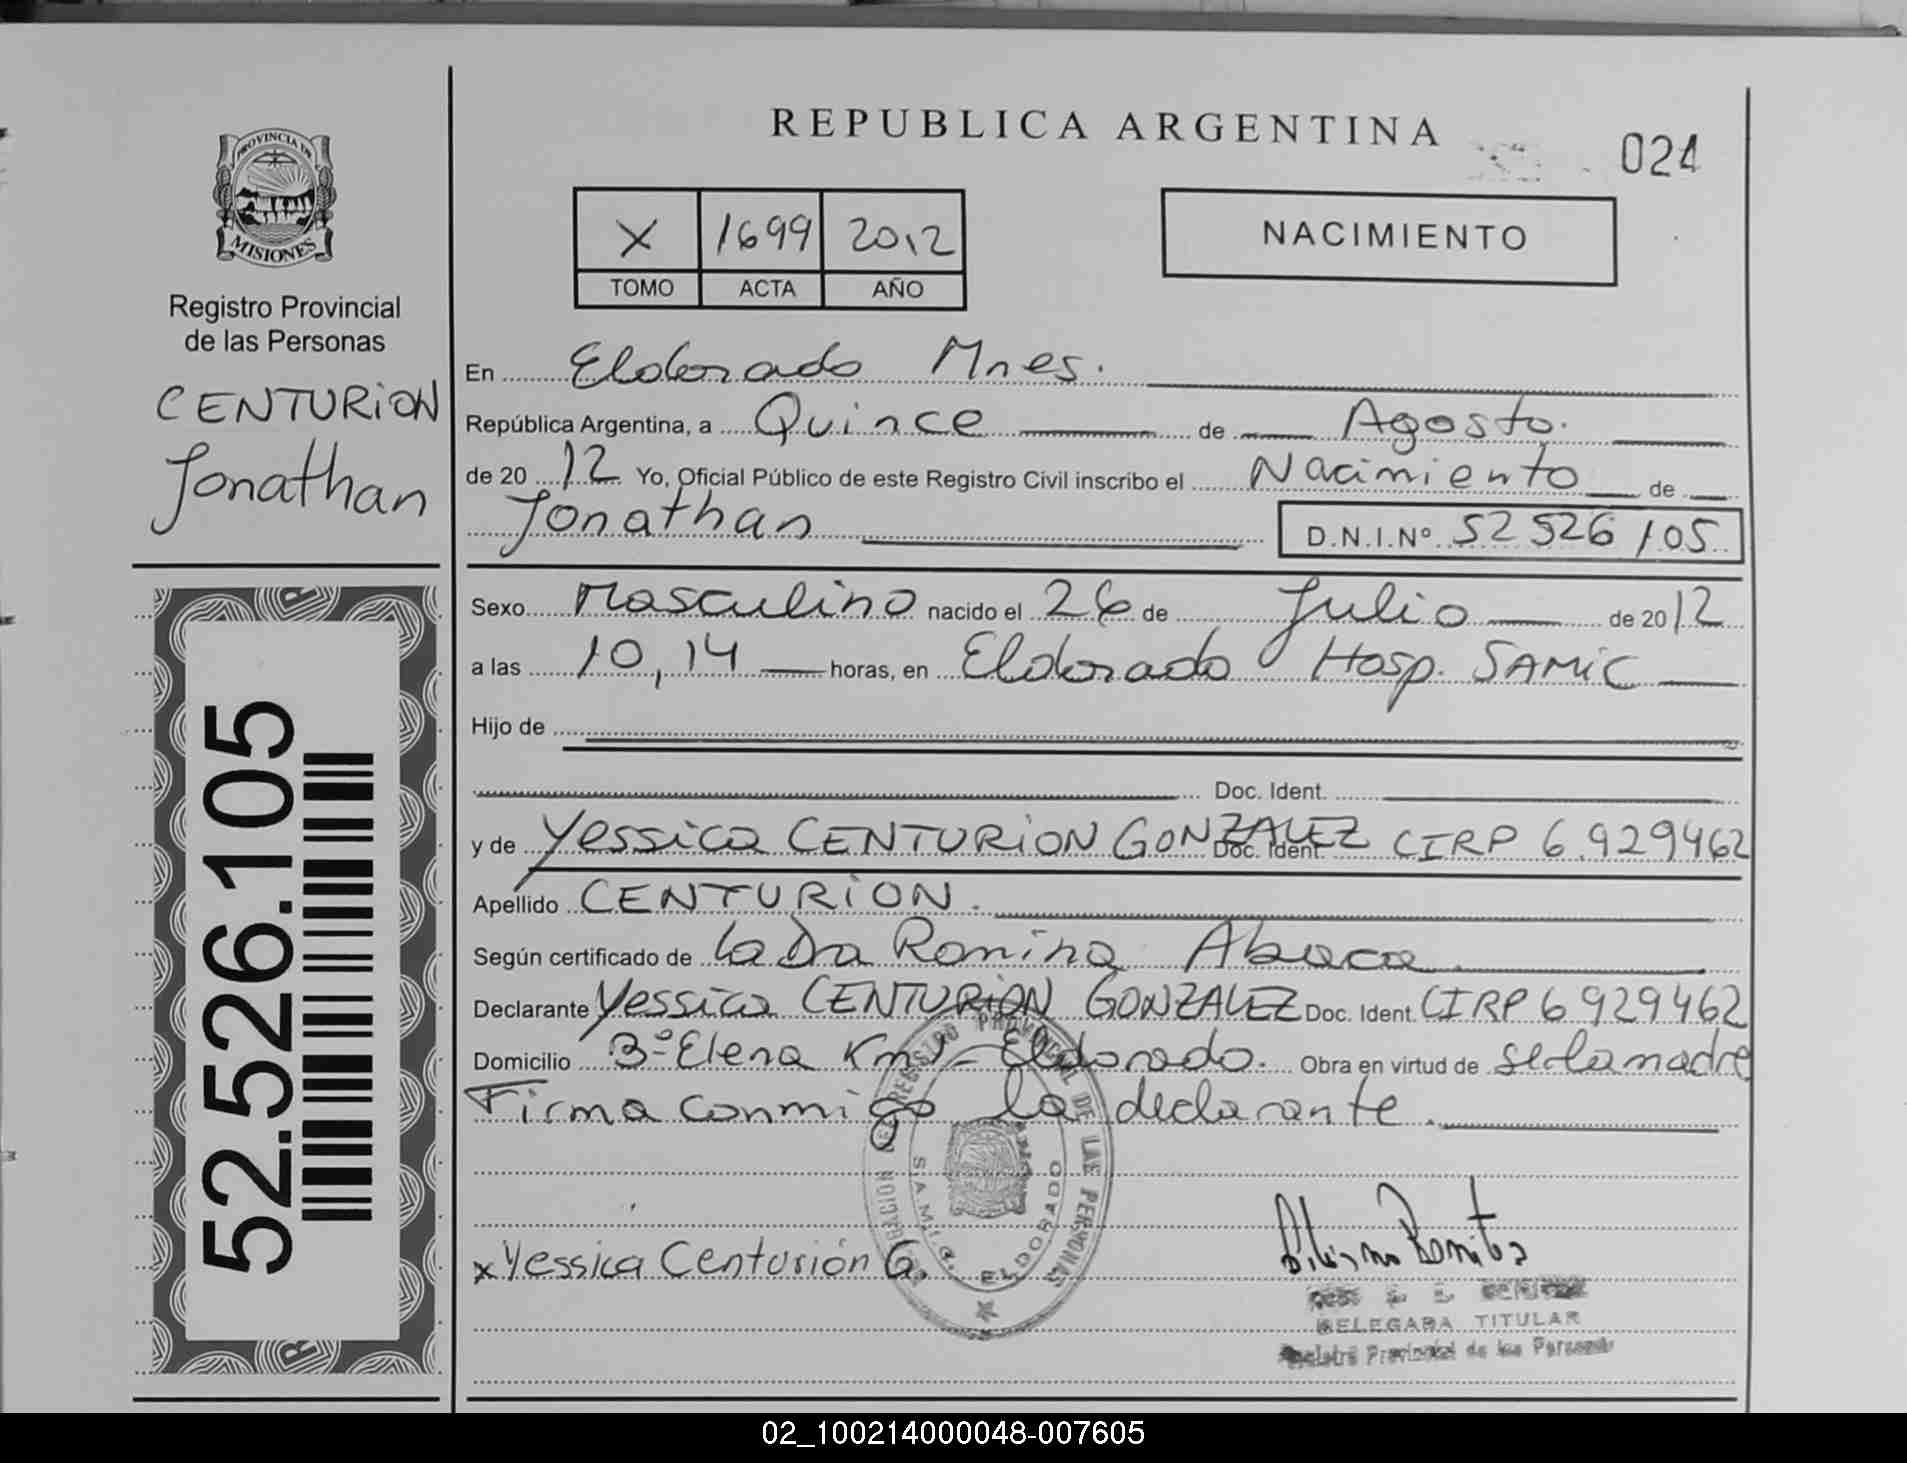 REPUBLICA ARGENTINA
024
PROVINCIA DE
MISIONES
Registro Provincial
de las Personas
CENTURION
Jonathan
52.526.105
X 1699 2012
TOMO ACTA AÑO
NACIMIENTO
En Eldorado Mnes.
República Argentina, a Quince de Agosto.
de 20 12 Yo, Oficial Público de este Registro Civil inscribo el Nacimiento de
Jonathan D.N.I.Nº 52 526 105
Sexo Masculino nacido el 26 de Julio de 2012
a las 10,14 horas, en Eldorado Hosp. SAMIC
Hijo de
Doc. Ident.
y de Yessica CENTURION GONZALEZ Doc. Ident. CIRP 6.929462
Apellido CENTURION.
Según certificado de la Dra Romina Abaca.
Declarante Yessica CENTURION GONZALEZ Doc. Ident. CIRP 6 929462
Domicilio Bº Elena Km 1 - Eldorado. Obra en virtud de ser la madre
Firma conmigo la declarante.
REGISTRO PROVINCIAL DE LAS PERSONAS
S.A.M.I.C. ELDORADO
x Yessica Centurión G.
DELEGADA TITULAR
Registro Provincial de las Personas
02_100214000048-007605